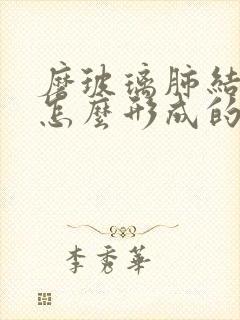 磨玻璃肺結
怎麼形成的
李秀華